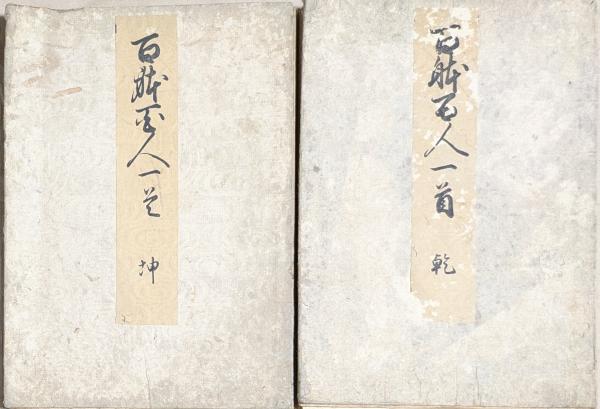 百百人一首 乾
百百人一首 坤